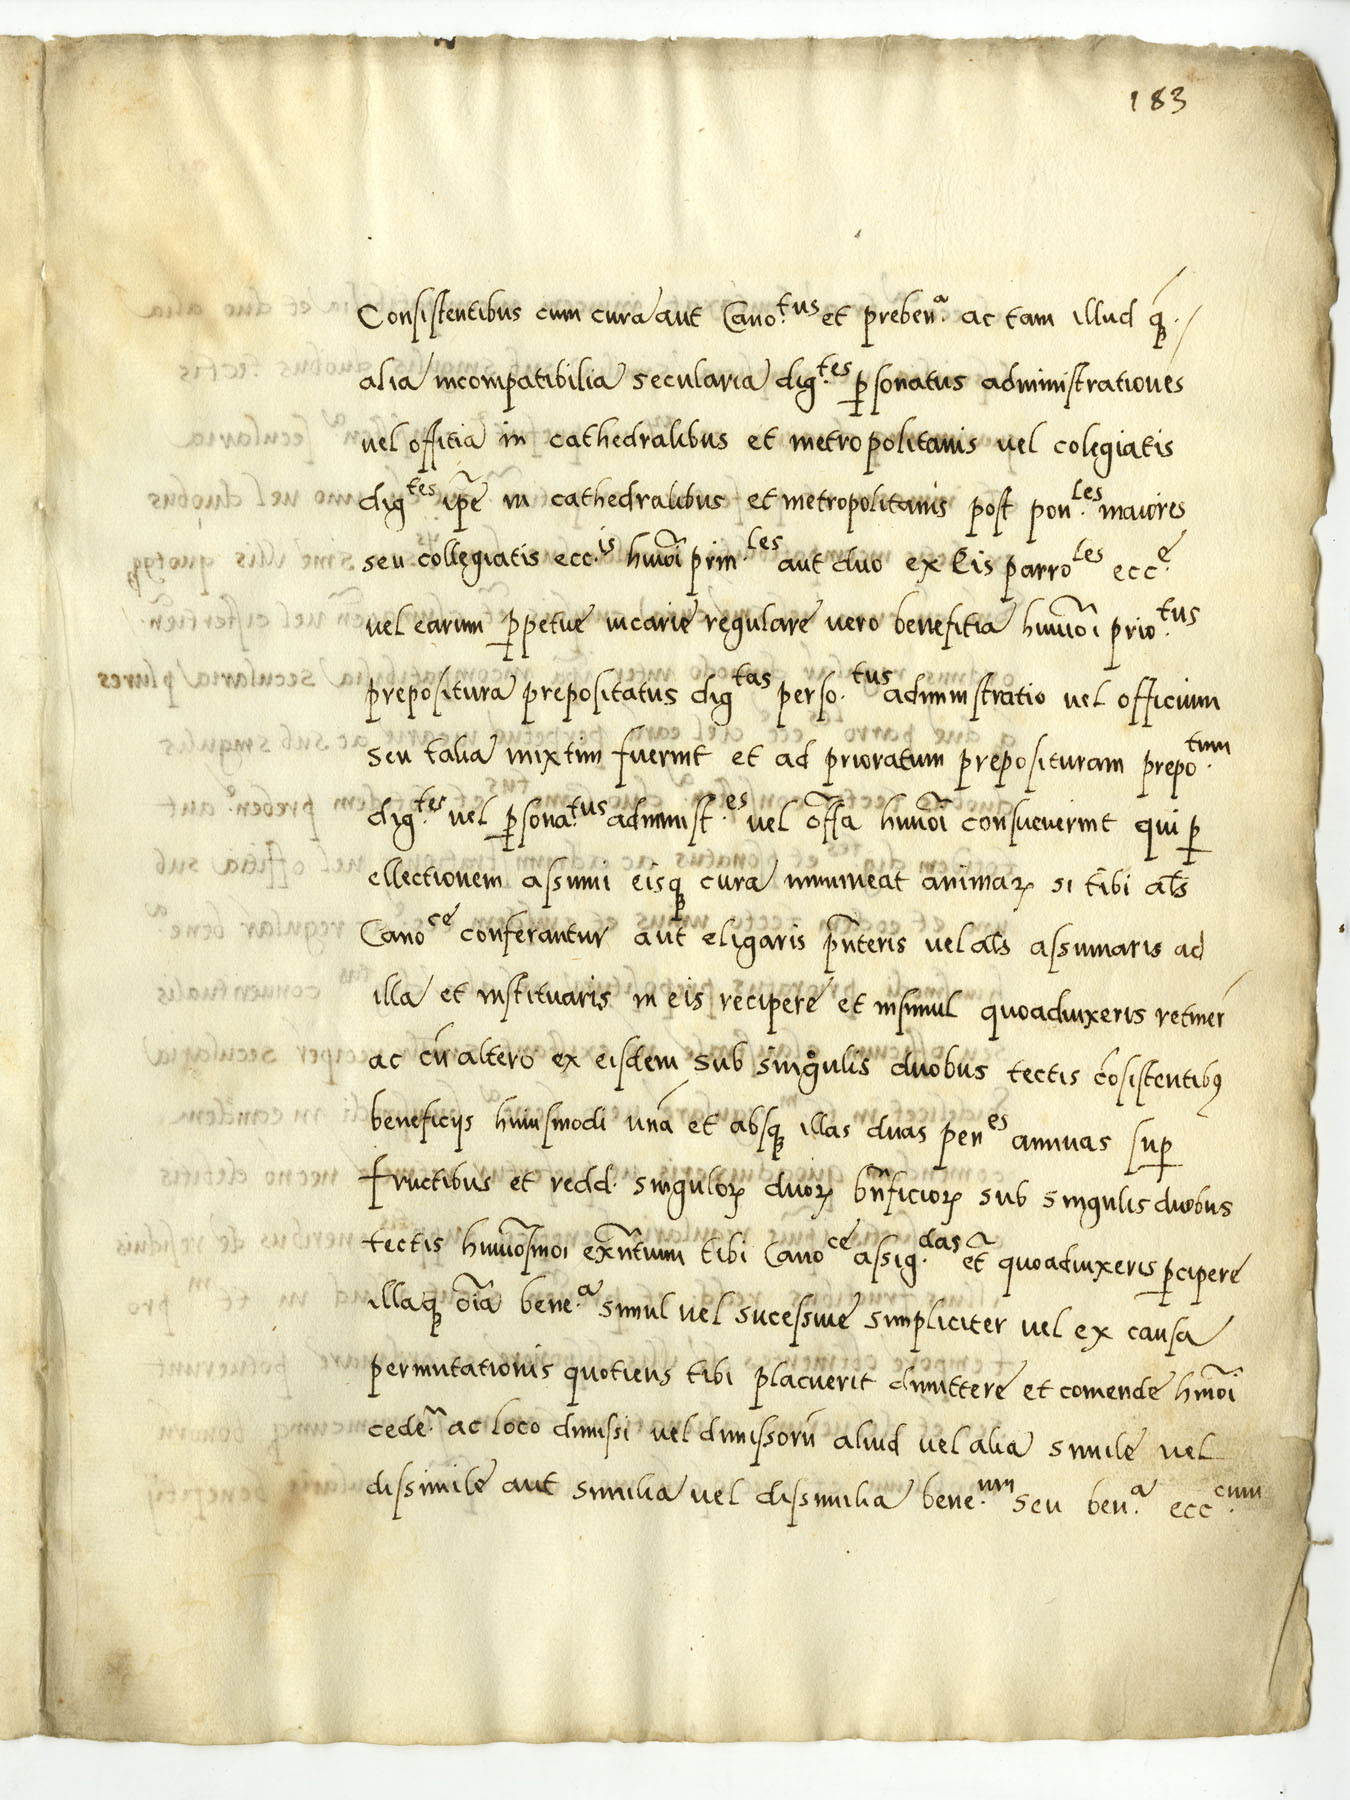 183
Consistentibus cum cura aut Cano.tus et preben.a ac tam illud q̃.
alia incompatibilia secularia dig.tes ꝑsonatus administrationes
vel offitia in cathedralibus et metropolitanis vel colegiatis
digtes ip̃e in cathedralibus et metropolitanis post pon.les maiores
seu collegiatis ecc.is hmõi prin.les aut duo ex Eis parroles ecc.e
vel earum ꝑpetue vicarie regulare vero benefitia hmõi prio.tus
prepositura prepositatus digtas perso.tus administratio vel officium
seu talia mixtim fuerint et ad prioratum preposituram prepo.tum
dig.tes vel ꝑsona.tus administ.es vel offã hmõi consueverint qui ꝑ
ellectionem assumi eisq cura immineat animaꝝ si tibi als
Canoce conferantur aut eligaris pñteris vel als assumaris ad
illa et instituaris in eis recipere et insimul quoaduixeris retiner
ac cũ altero ex eisdem sub singulis duobus tectis cõsistentibꝫ
beneficijs huiusmodi una et absq illas duas penes annuas suꝑ
fructibus et redd. singuloꝝ duoꝝ bñficioꝝ sub singulis duobus
tectis hmõsmoi exñtium tibi Canoce assig.das et quoaduixeris ꝑcipere
illaq oĩa bene.a simul vel sucessiue simpliciter vel ex causa
permutationis quotiens tibi placuerit dimittere et comende hmõi
cede. ac loco dimissi vel dimissorũ aliud vel alia simile vel
dissimile aut similia vel dissimilia bene.um seu ben.a ecc.cum